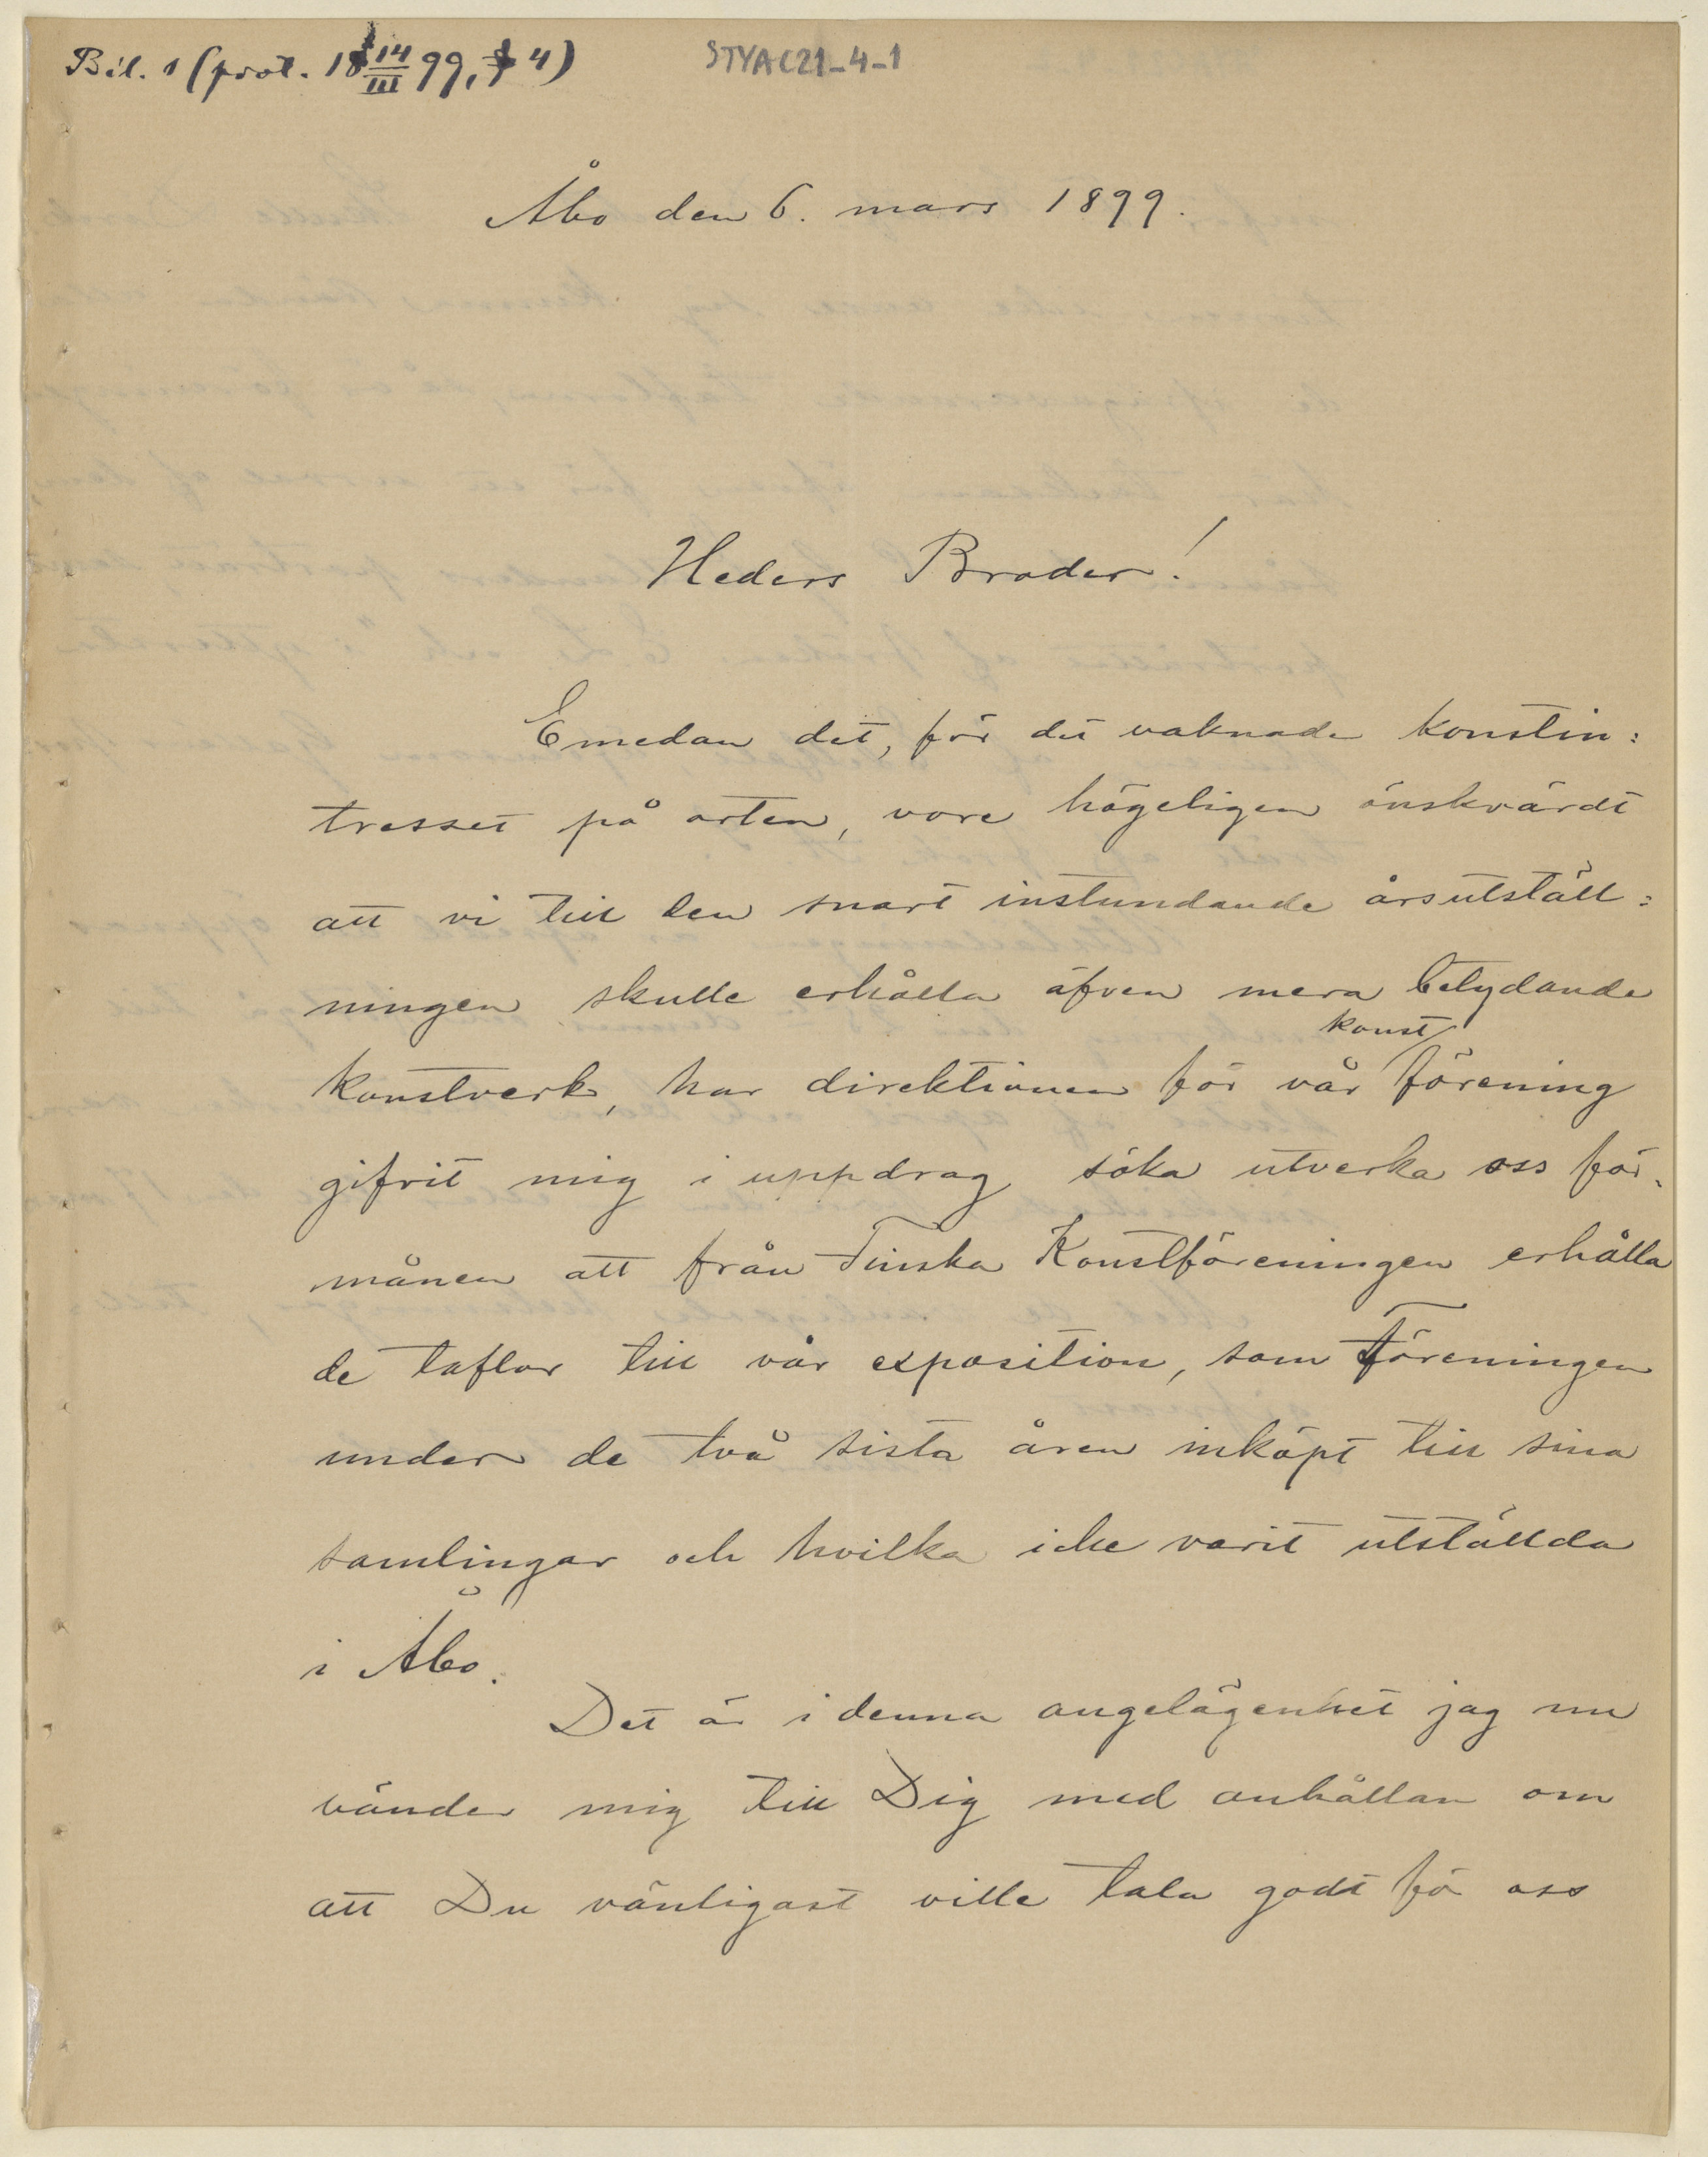 Bil. 1 (prot. 18 14/III 99, § 4)
STYA C21-4-1
Åbo den 6. mars 1899.
Heders Broder!
Emedan det, för det vaknade konstin:
tresset på orten, vore högeligen önskvärdt
att vi till den snart instundande årsutställ:
ningen skulle erhålla äfven mera betydande
konst
konstverk, har direktionen för vår förening
gifvit mig i uppdrag söka utverka oss för:
månen att från Finska Konstföreningen erhålla
de taflor till vår exposition, som Föreningen
under de två sista åren inköpt till sina
samlingar och hvilka icke varit utställda
i Åbo.
Det är i denna angelägenhet jag nu
vänder mig till Dig med anhållan om
att Du vänligast ville tala godt för oss